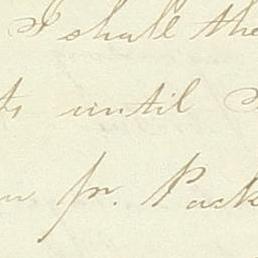 I shall the
until
pr. Pack